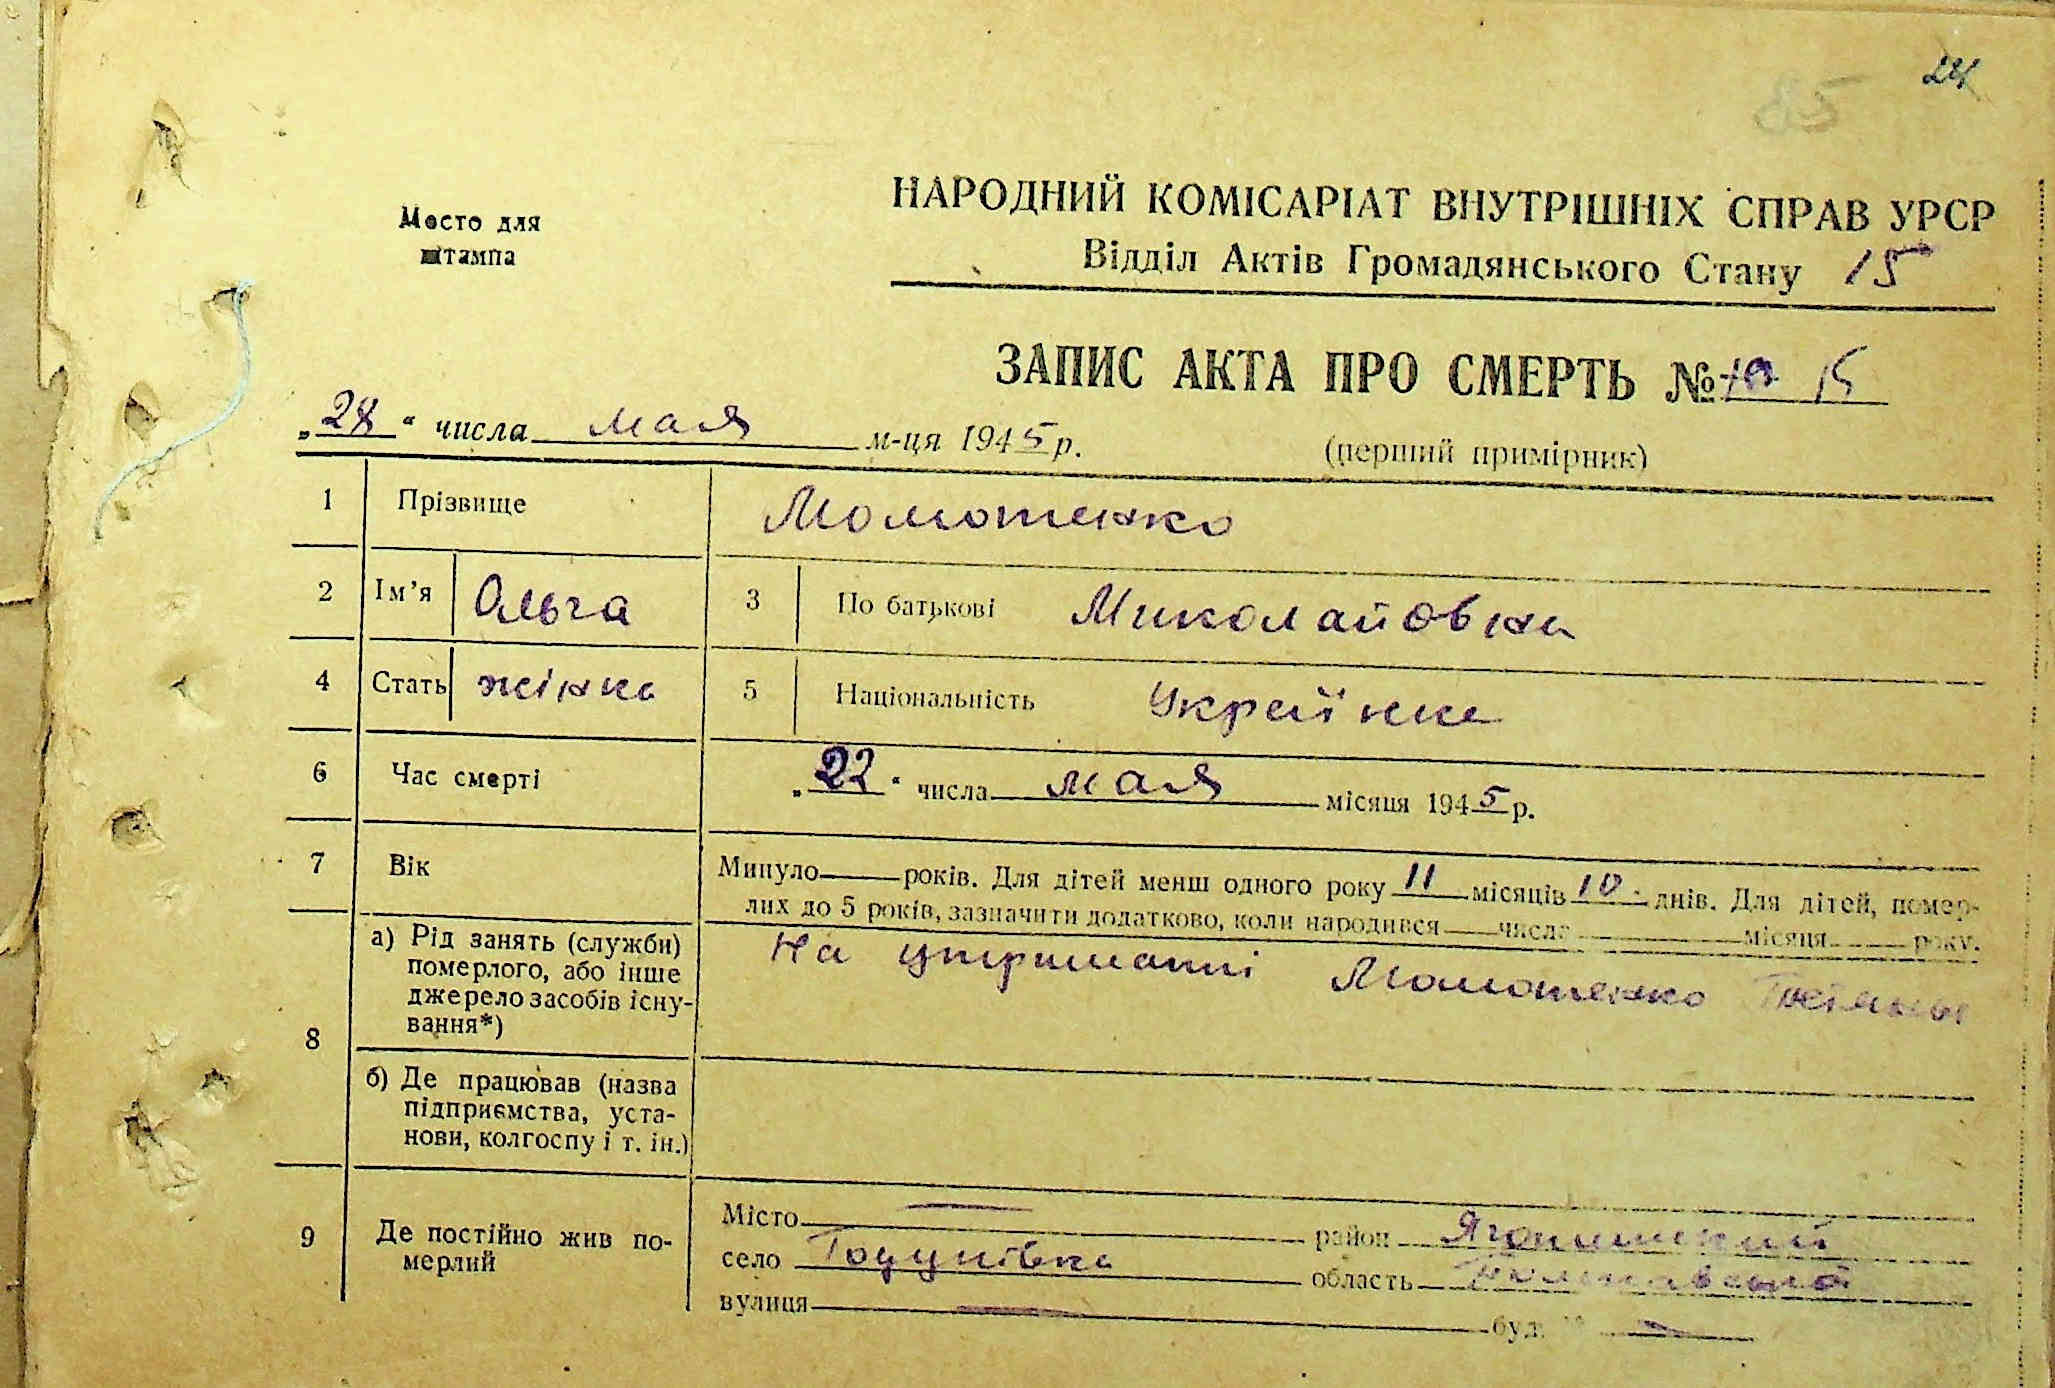 24
Место для
штампа
НАРОДНИЙ КОМІСАРІАТ ВНУТРІШНІХ СПРАВ УРСР
Відділ Актів Громадянського Стану 15
ЗАПИС АКТА ПРО СМЕРТЬ № 10 15
„28“ числа мая м-ця 1945 р.
(перший примірник)
1 Прізвище Момотенко
2 Ім’я Ольга 3 По батькові Миколайовна
4 Стать жінка 5 Національність Українка
6 Час смерті „22“ числа мая місяця 1945 р.
7 Вік Минуло років. Для дітей менш одного року 11 місяців 10 днів. Для дітей, помер-
лих до 5 років, зазначити додатково, коли народився числа місяця року.
8 а) Рід занять (служби) На утриманні Момотенко
померлого, або інше
джерело засобів існу-
вання*)
б) Де працював (назва
підприємства, уста-
нови, колгоспу і т. ін.)
9 Де постійно жив по-
мерлий
Місто район Яготинский
село Годунівка область Полтавской
вулиця буд.